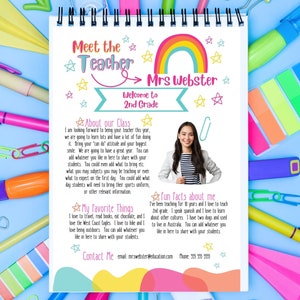 Meet the
Teacher
Mrs Webster
Welcome to
2nd Grade
About our Class
I am looking forward to being your teacher this year,
we are going to learn lots and have a lot of fun doing
it. Bring your "can do" attitude and your biggest
smile. We are going to have a great year. You can
add whatever you like in here to share with your
students. You could even add what to bring etc,
what you may subjects you may be teaching or even
what to expect on the first day. You could add what
day students will need to bring their sports uniform,
or other relevant information.
My Favorite Things
I love to travel, read books, eat chocolate, and I
love the West Coast Eagles. I love to shop and
love being outdoors. You can add whatever you
like in here to share with your students.
Fun facts about me
I've been teaching for 10 years and I love to teach
2nd grade. I speak spanish and I love to learn
about other cultures. I have two dogs and used
to live in Australia. You can add whatever you
like in here to share with your students.
Contact Me email: mrswebster@education.com Phone: 555 555 5555